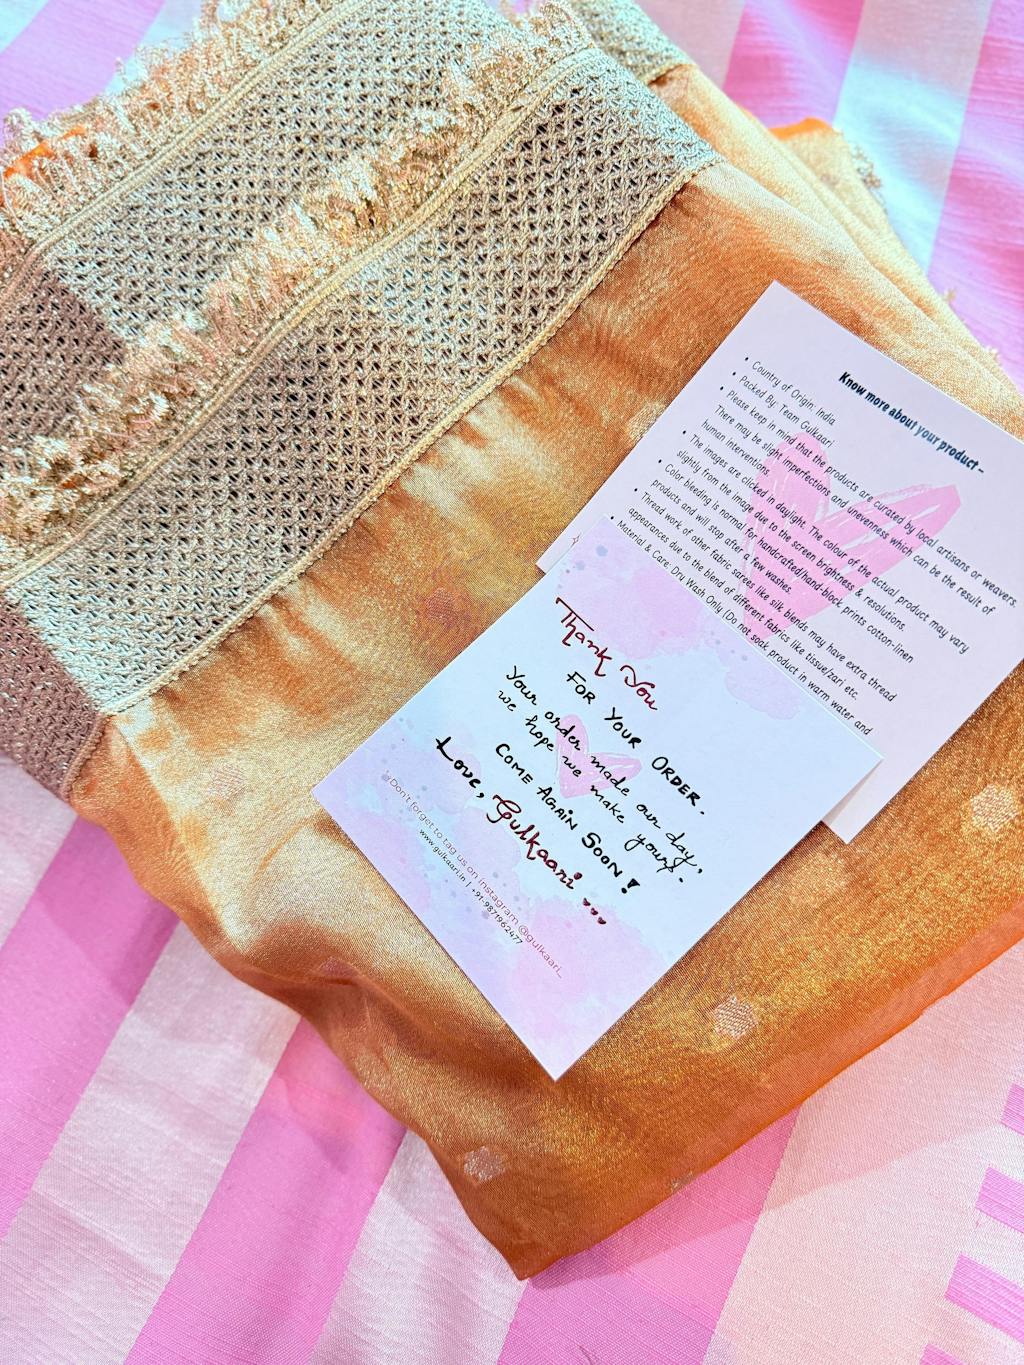 Know more about your product –
• Country of Origin: India
• Packed By: Team Gulkaari
• Please keep in mind that the products are curated by local artisans or weavers.
There may be slight imperfections and unevenness which can be the result of
human interventions.
• The images are clicked in daylight. The colour of the actual product may vary
slightly from the image due to the screen brightness & resolutions.
• Color bleeding is normal for handcrafted/hand-block prints cotton-linen
products and will stop after a few washes.
• Thread work of other fabric sarees like silk blends may have extra thread
appearances due to the blend of different fabrics like tissue/zari etc.
• Material & Care: Dry Wash Only (Do not soak product in warm water and
Thank You
FOR YOUR ORDER.
Your order made our day,
we hope we make yours.
COME AGAIN SOON!
Love, Gulkaari...
Don't forget to tag us on instagram @gulkaari_
www.gulkaari.in | +91-9871962477